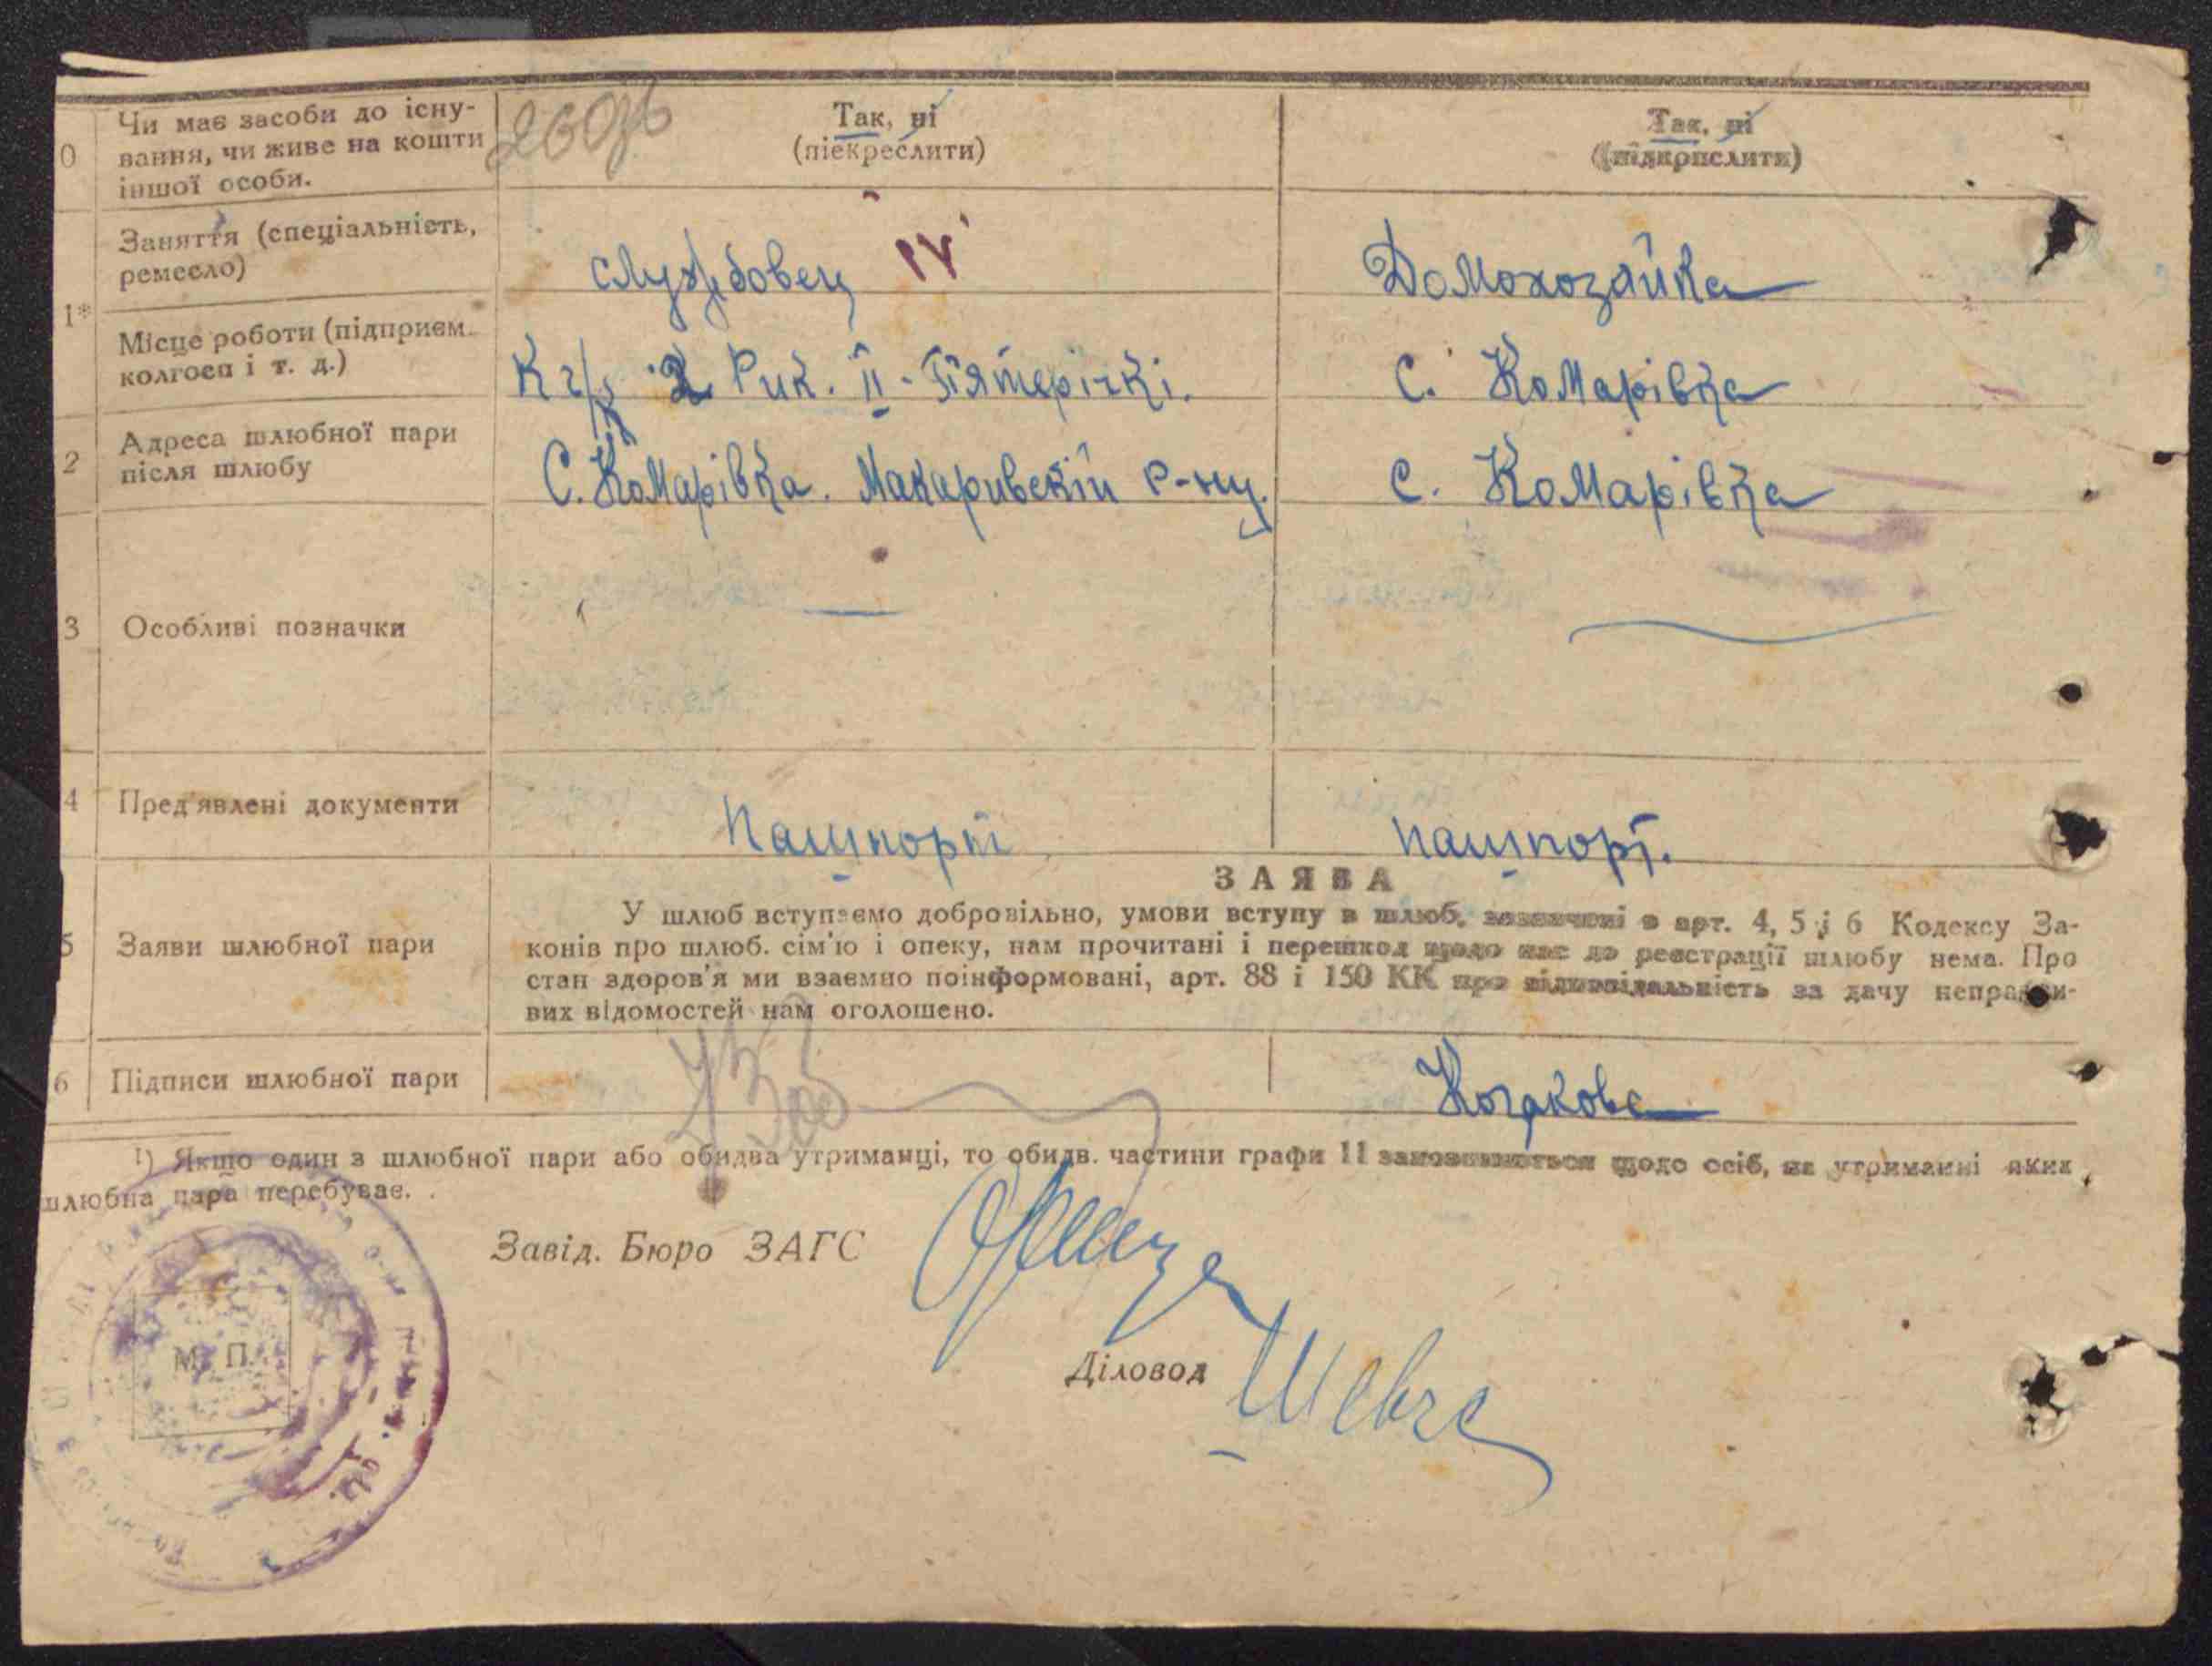 0 Чи має засоби до існу-
вання, чи живе на кошти
іншої особи.
Так, ні
(піекреслити)
Так, ні
(підкрпслити)
1* Заняття (спеціальність,
ремесло)
службовец IV
Домохозяйка
Місце роботи (підприєм.
колгосп і т. д.)
2 Рик. II - П'ятерічкі.
с. Комарівка
2 Адреса шлюбної пари
після шлюбу
С. Комарівка. Макаривскій р-ну.
с. Комарівка
3 Особливі позначки
4 Пред'явлені документи
Пашпорт
пашпорт.
ЗАЯВА
5 Заяви шлюбної пари
У шлюб вступаємо добровільно, умови вступу в шлюб, зазначені в арт. 4, 5 і 6 Кодексу За-
конів про шлюб. сім'ю і опеку, нам прочитані і перешкод щодо нас до реєстрації шлюбу нема. Про
стан здоров'я ми взаємно поінформовані, арт. 88 і 150 КК про відповідальність за дачу неправди-
вих відомостей нам оголошено.
6 Підписи шлюбної пари
Козакова
1) Якщо один з шлюбної пари або обидва утриманці, то обидв. частини графи 11 заповнюються щодо осіб, на утриманні яких
шлюбна пара перебуває.
Завід. Бюро ЗАГС
М. П.
Діловод Шевч